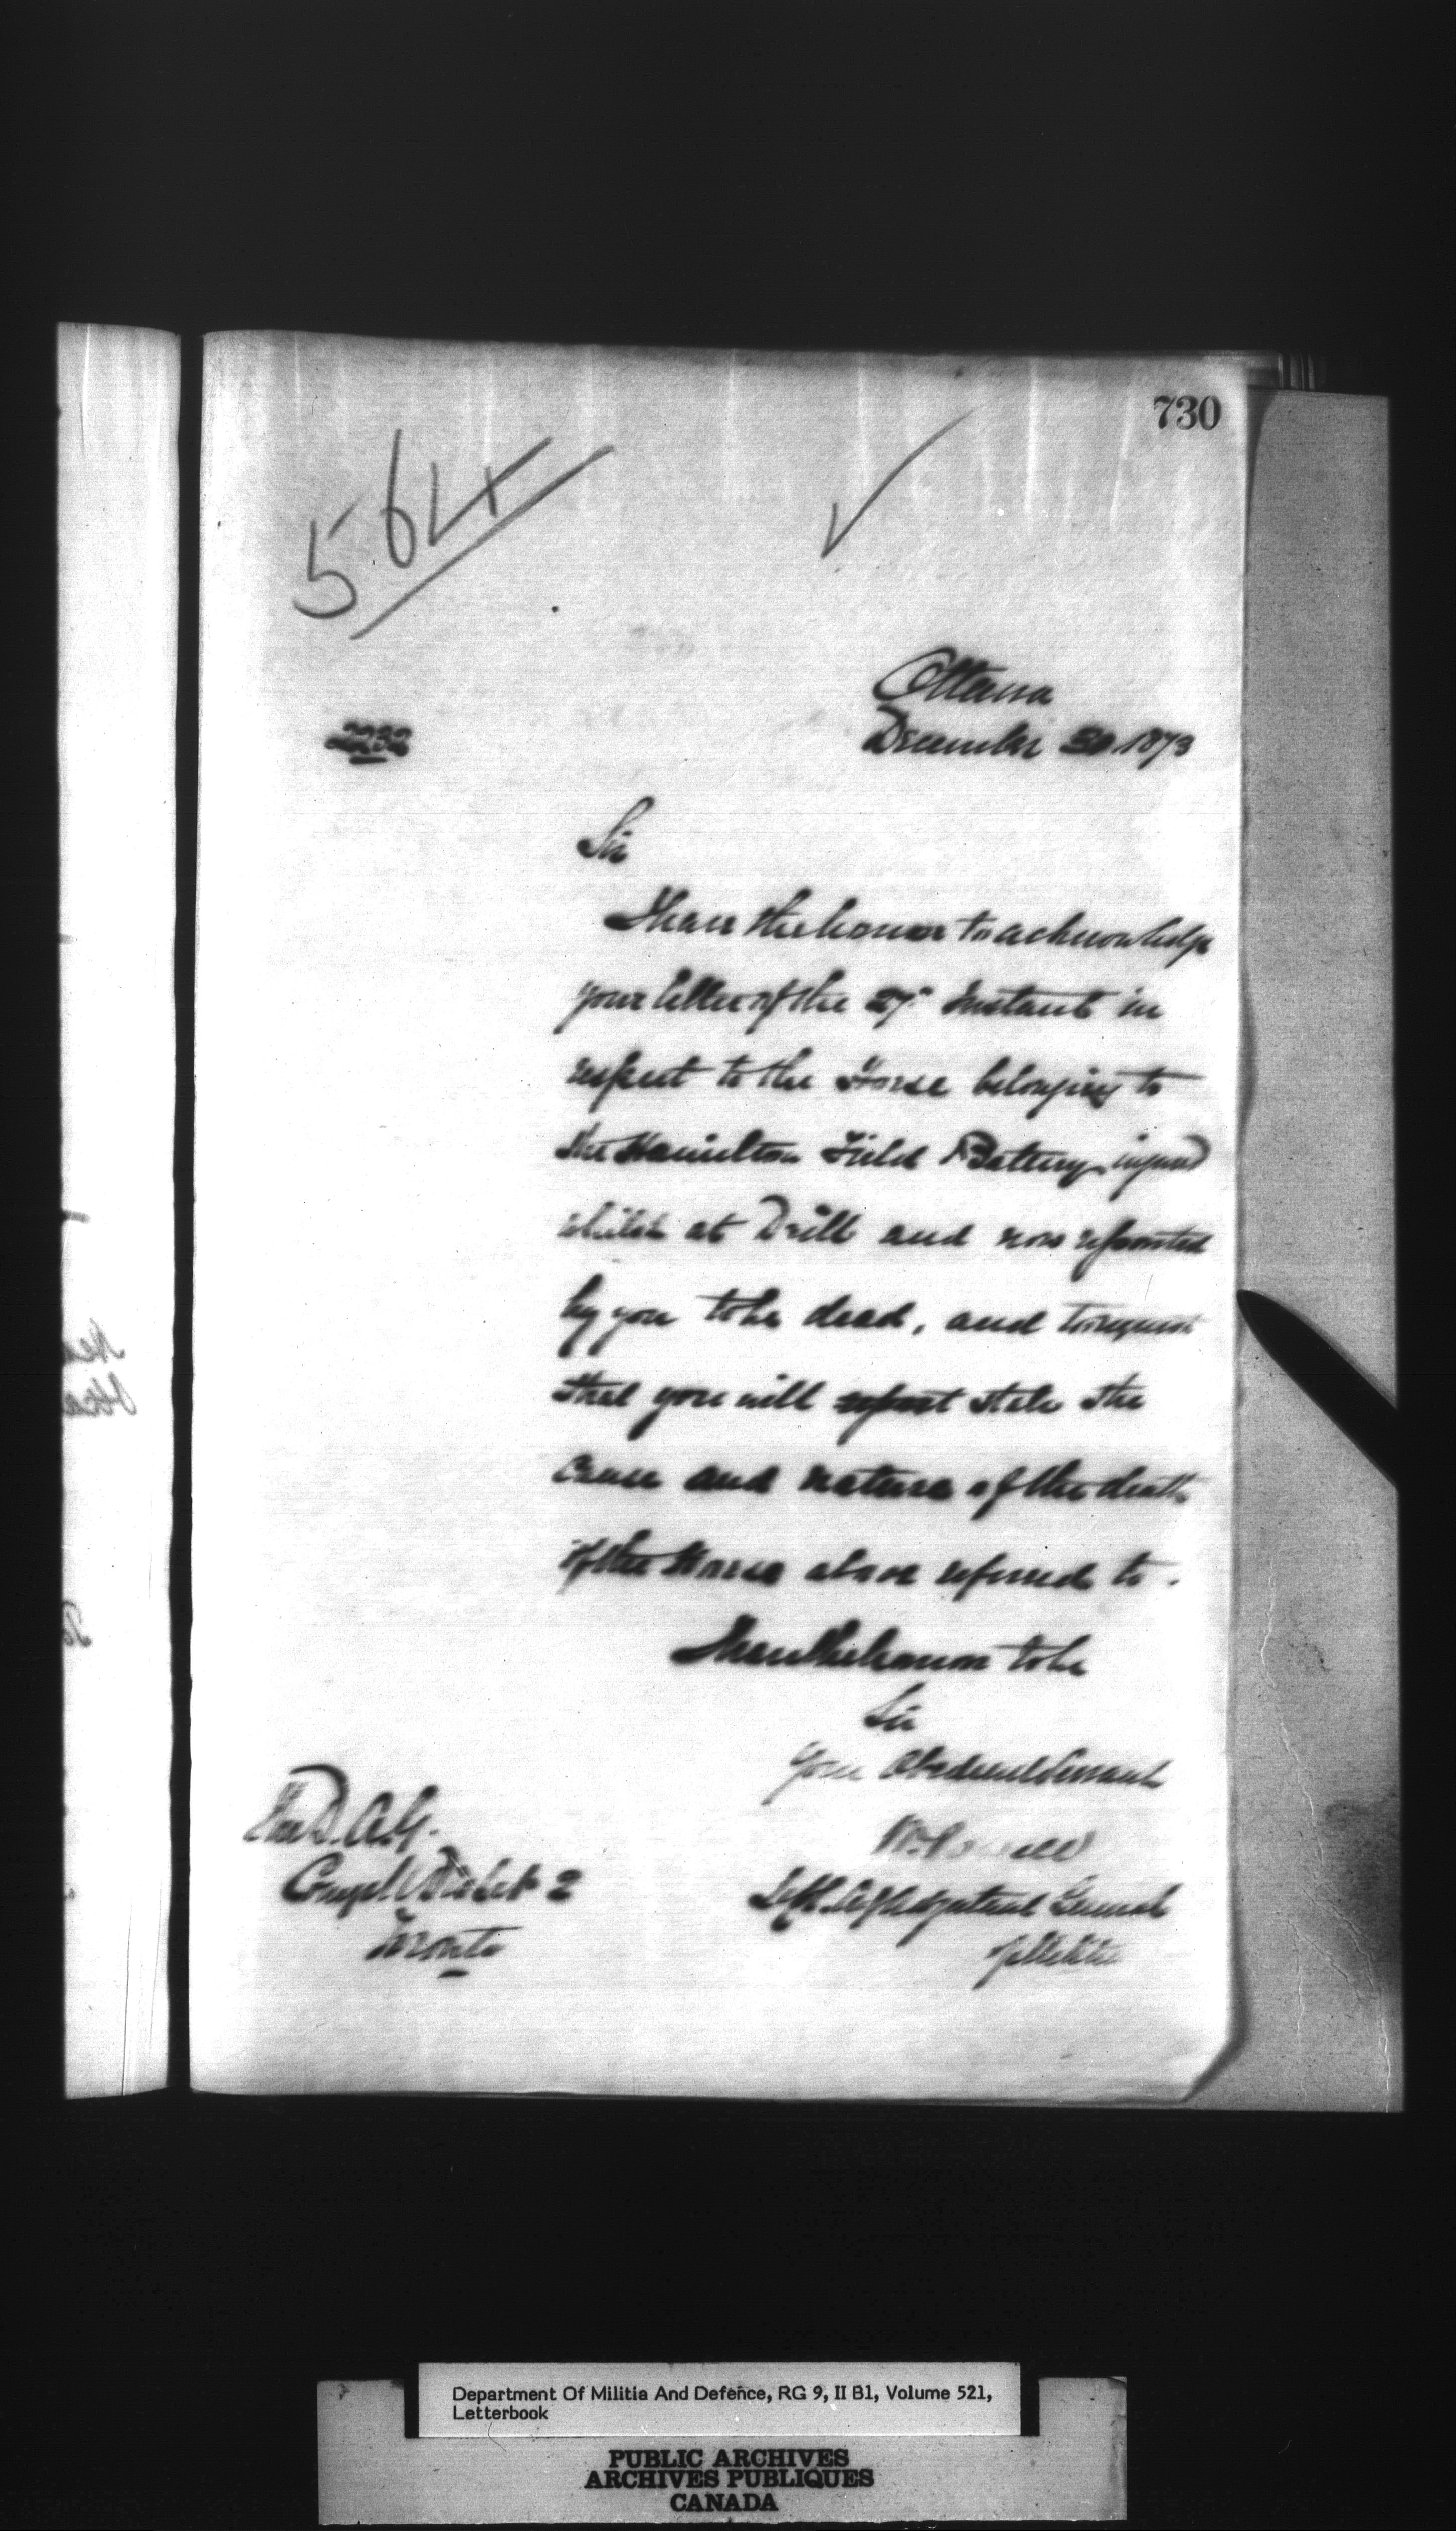 730
564
Ottawa
December 30. 1873
Sir
I have the honor to acknowledge
your letter of the 27th Instant in
respect to the Horse belonging to
the Hamilton Field Battery injured
whilst at Drill and now reported
by you to be dead, and to request
that you will report state the
cause and nature of the death
of the Horse above referred to.
I have the honor to be
Sir
Your Obedient Servant
W. Powell
Adjutant General
of Militia
The D.A.G.
Comg. Mil District 2
Toronto
Department Of Militia And Defence, RG 9, II B1, Volume 521,
Letterbook
PUBLIC ARCHIVES
ARCHIVES PUBLIQUES
CANADA